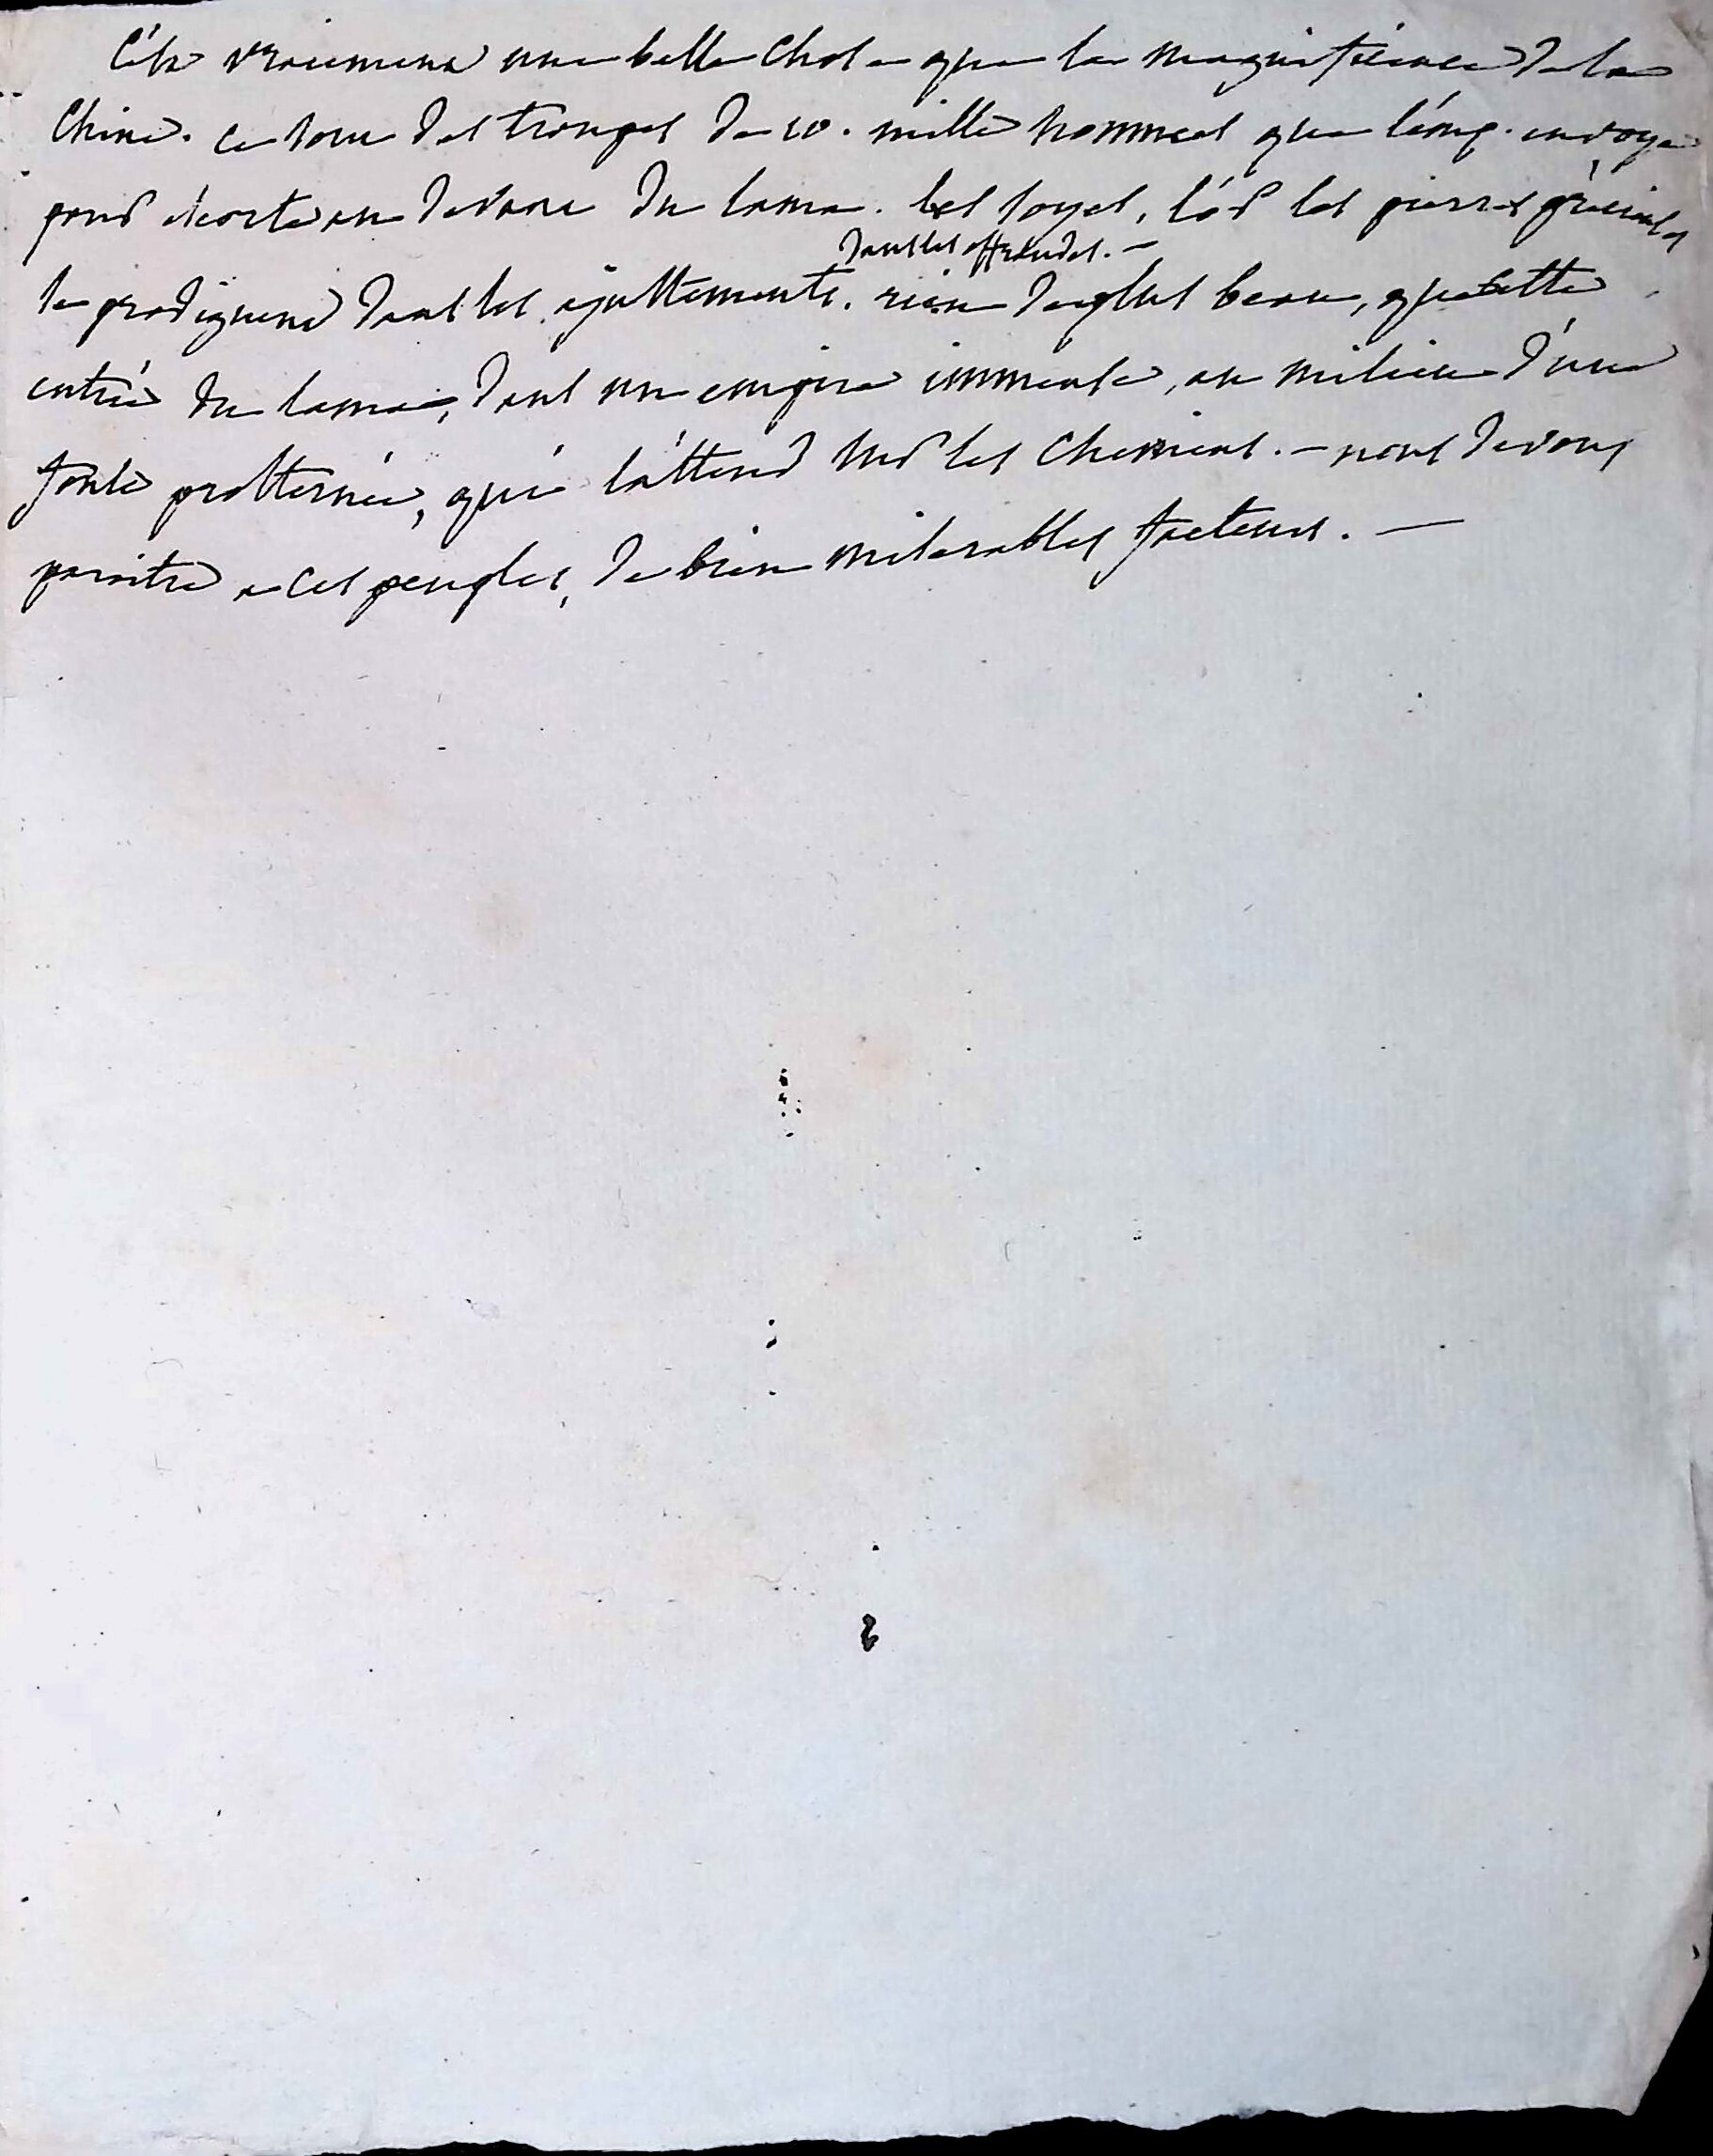 C'est vraiement une belle chose que la magnificence de la
Chine. ce sont des troupes de 10. mille hommes que l'emp. envoye
pour escorte au devant du lama. les soyes, l'or les pierres précieuses
dans les offrandes. —
se prodiguent dans les ajustements. rien de plus beau, que cette
entrée du lama, dans un empire immense, au milieu d'une
foule prosternée, qui l'attend sur les chemins. — nous devons
paroitre a ces peuples, de bien miserables facteurs. —